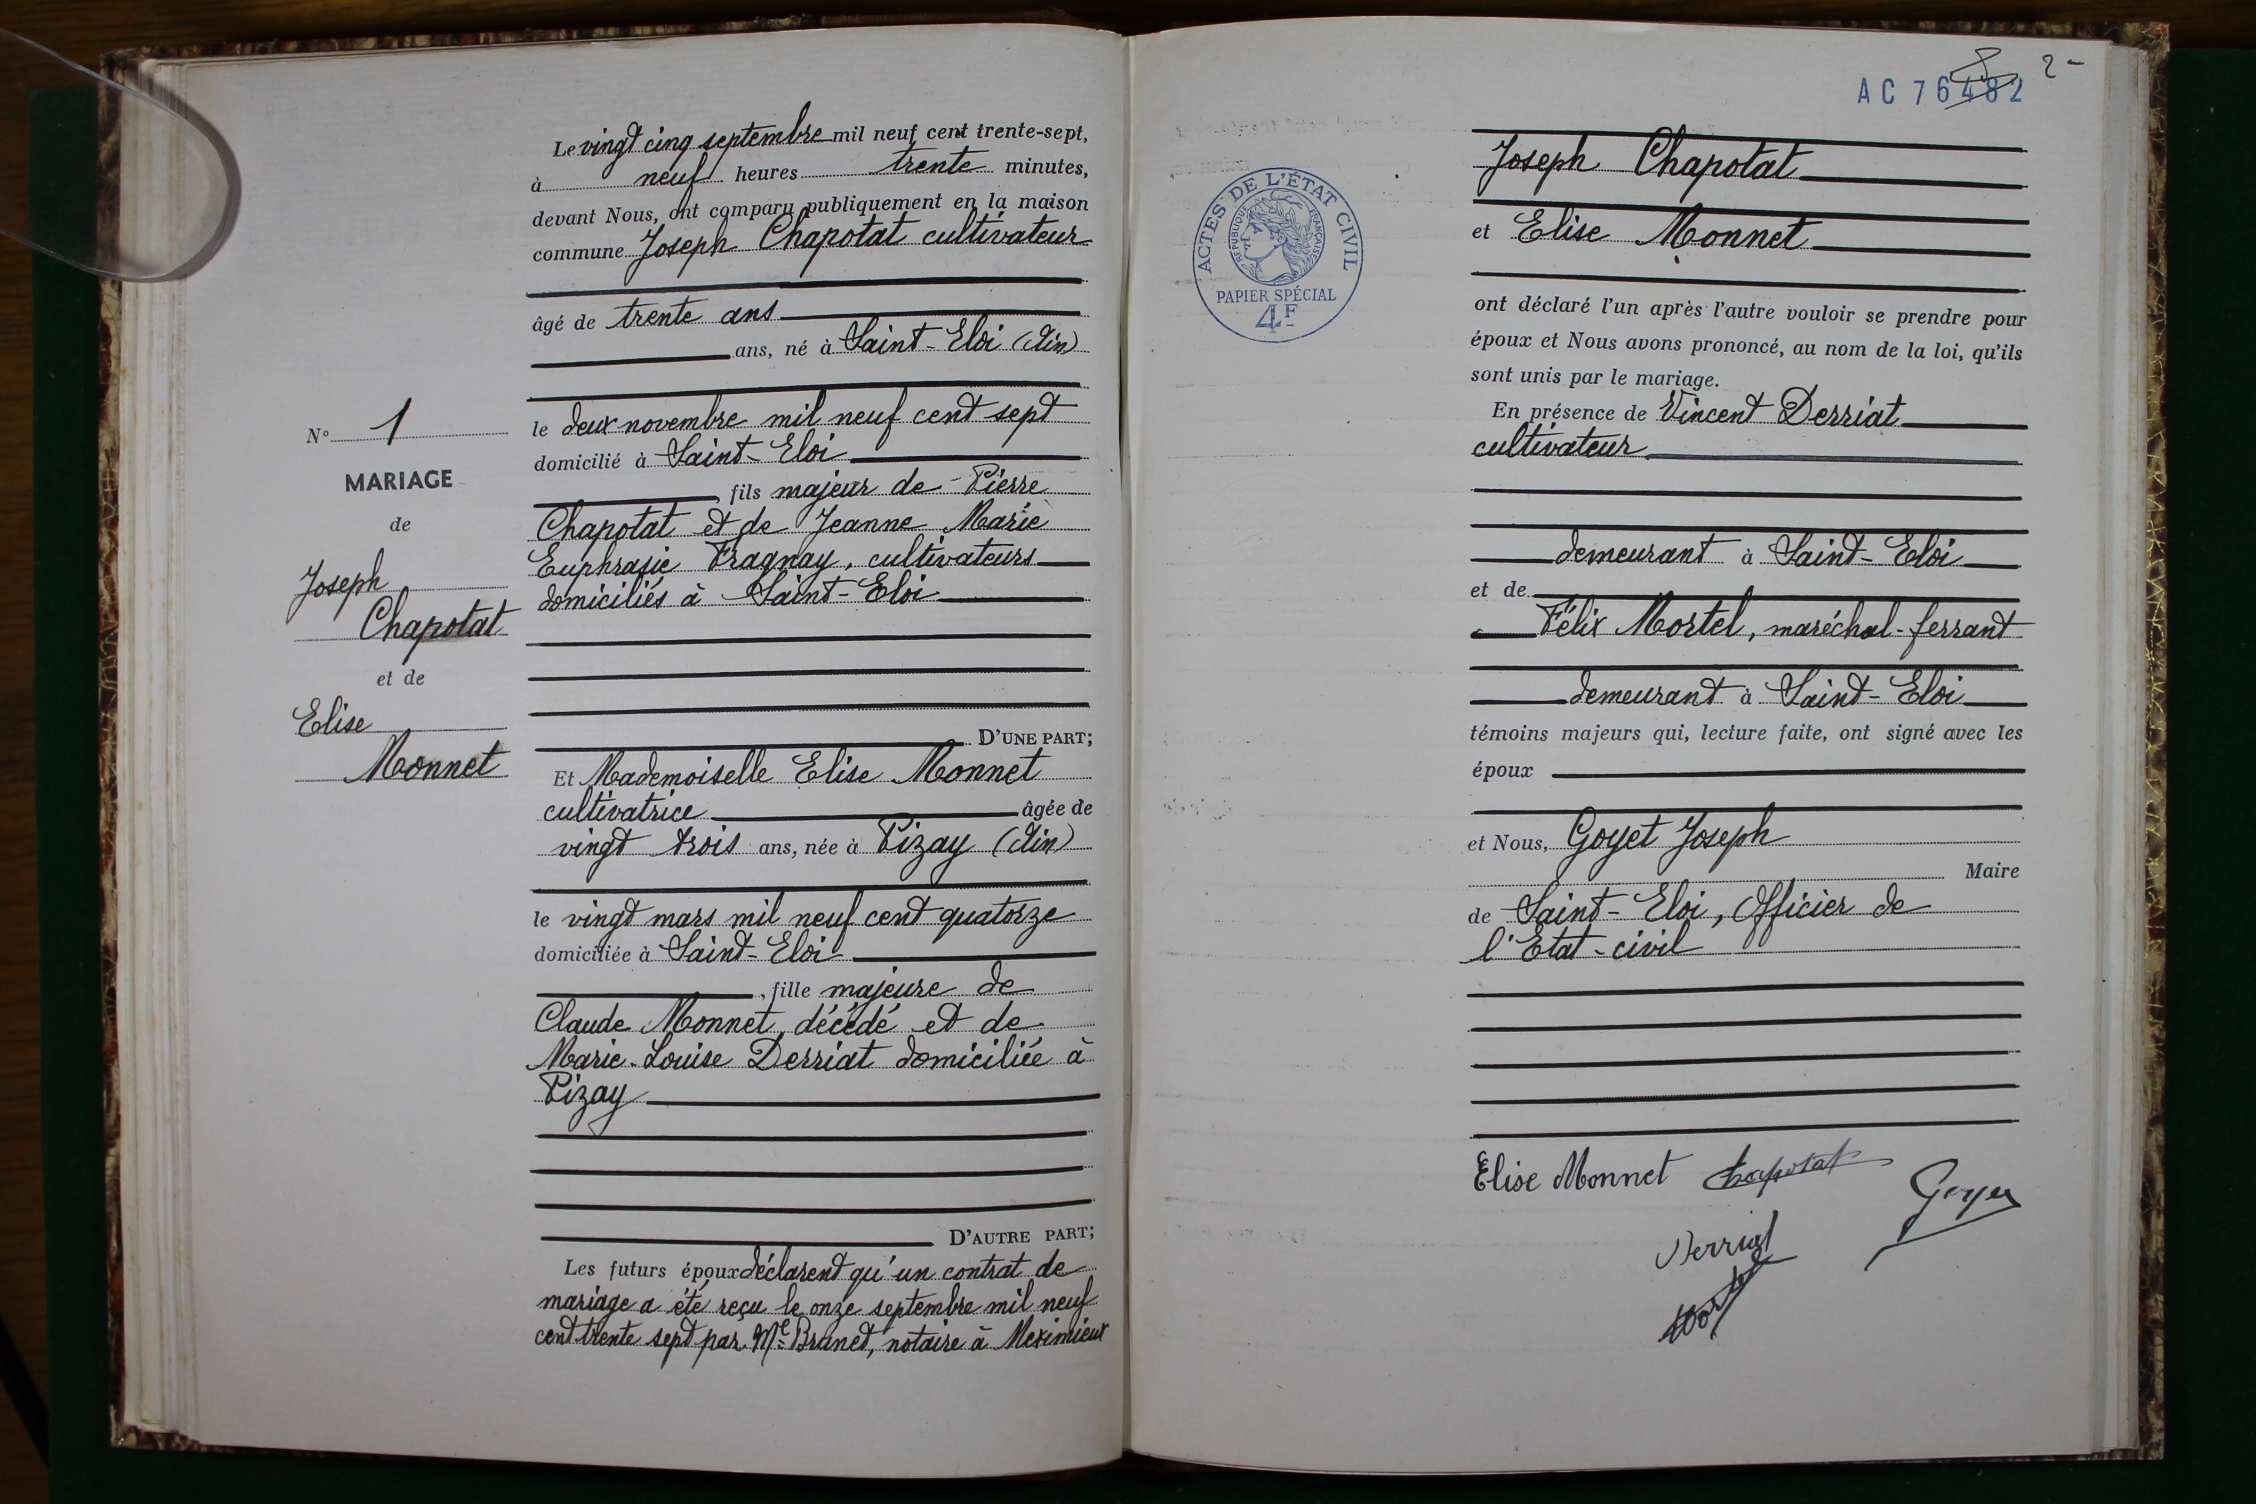 N° 1
MARIAGE
de
Joseph
Chapotat
et de
Elise
Monnet
Le vingt cinq septembre mil neuf cent trente-sept,
à neuf heures trente minutes,
devant Nous, ont comparu publiquement en la maison
commune Joseph Chapotat cultivateur
âgé de trente ans
ans, né à Saint-Eloi (Ain)
le deux novembre mil neuf cent sept
domicilié à Saint-Eloi
, fils majeur de Pierre
Chapotat et de Jeanne Marie
Euphrasie Fragnay, cultivateurs
domiciliés à Saint-Eloi
D'UNE PART;
Et Mademoiselle Elise Monnet
cultivatrice âgée de
vingt trois ans, née à Pizay (Ain)
le vingt mars mil neuf cent quatorze
domiciliée à Saint-Eloi
, fille majeure de
Claude Monnet, décédé et de
Marie-Louise Derriat domiciliée à
Pizay
D'AUTRE PART;
Les futurs époux déclarent qu'un contrat de
mariage a été reçu le onze septembre mil neuf
cent trente sept par Me Brunet, notaire à Meximieux
2 -
AC 76482
ACTES DE L'ÉTAT CIVIL
RÉPUBLIQUE FRANÇAISE
PAPIER SPÉCIAL
4F
Joseph Chapotat
et Elise Monnet
ont déclaré l'un après l'autre vouloir se prendre pour
époux et Nous avons prononcé, au nom de la loi, qu'ils
sont unis par le mariage.
En présence de Vincent Derriat
cultivateur
demeurant à Saint-Eloi
et de
Félix Mortel, maréchal-ferrant
demeurant à Saint-Eloi
témoins majeurs qui, lecture faite, ont signé avec les
époux
et Nous, Goyet Joseph
Maire
de Saint-Eloi, Officier de
l'Etat-civil
Elise Monnet Chapotat
Goyet
Derriat